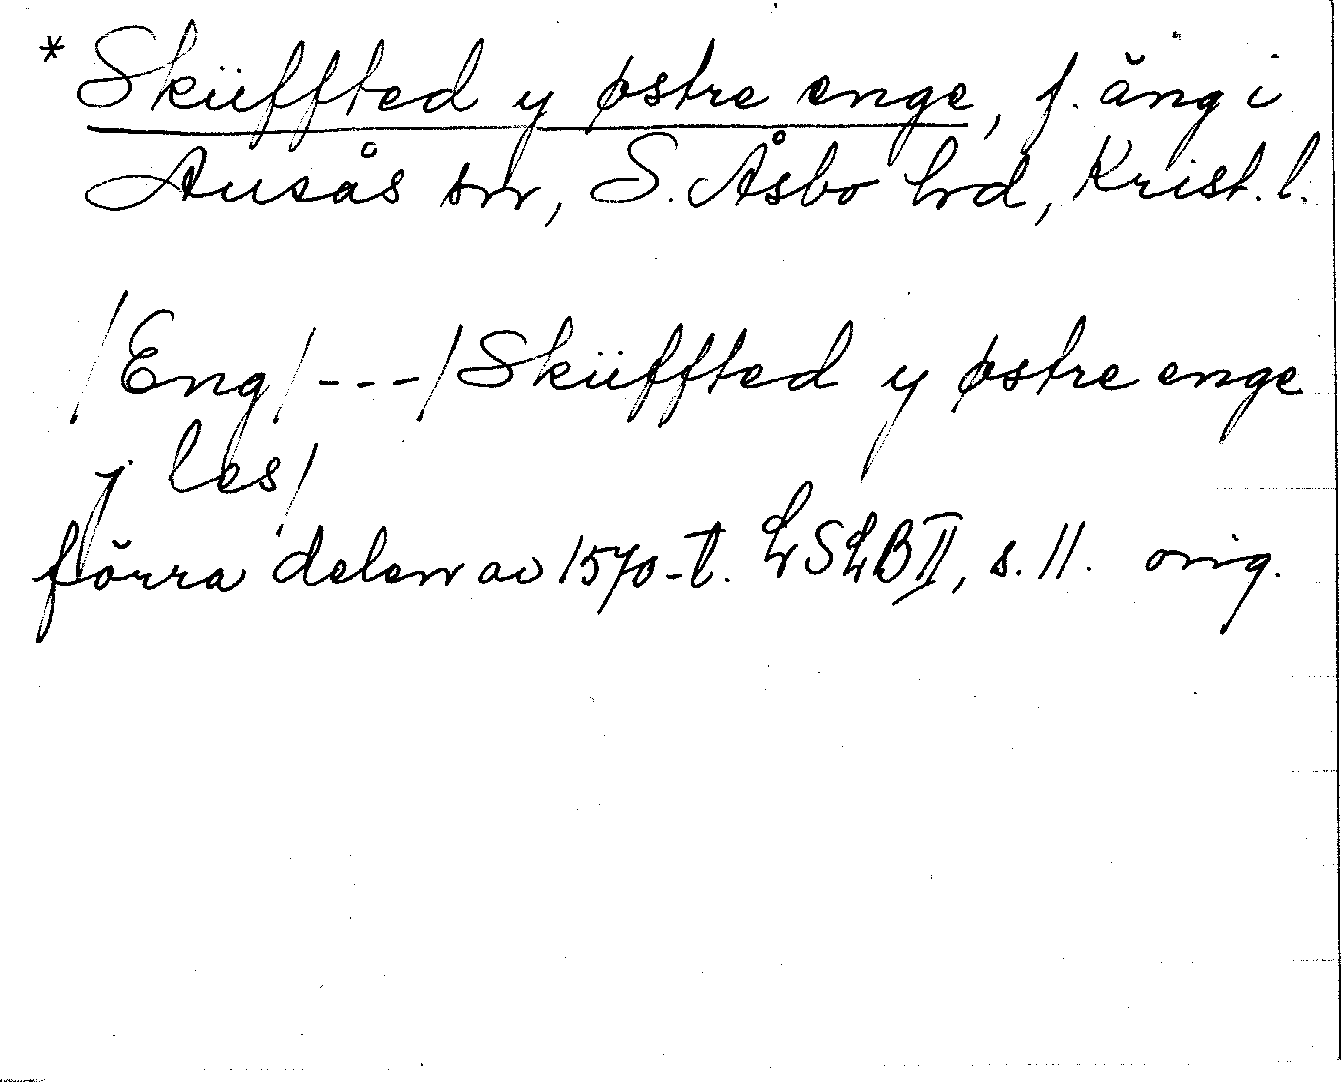 * Sküffted y østre enge, f. äng i
Ausås sn, S. Åsbo hd, Krist. l.
/Eng/---/Sküffted y østre enge
y les/
förra delen av 1570-t. LSLB II, s. 11. orig.